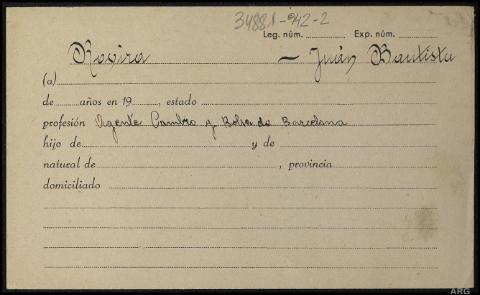 34881-942-2
Leg. núm. Exp. núm.
Rovira — Juán Bautista
(a)
de años en 19 , estado
profesión Agente Cambio y Bolsa de Barcelona
hijo de y de
natural de , provincia
domiciliado
ARG